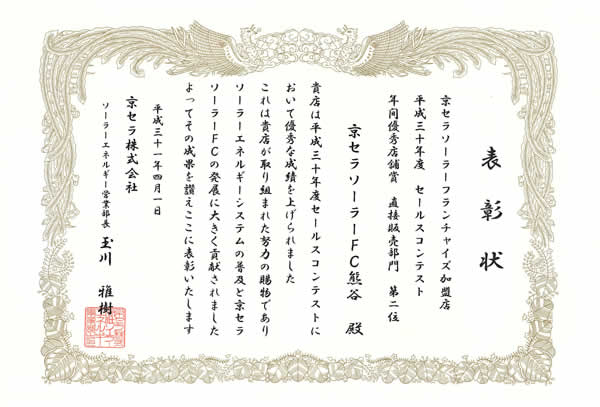 表彰状
京セラソーラーフランチャイズ加盟店
平成三十年度 セールスコンテスト
年間優秀店舗賞 直接販売部門 第二位
京セラソーラーFC熊谷 殿
貴店は平成三十年度セールスコンテストに
おいて優秀な成績を上げられました
これは貴店が取り組まれた努力の賜物であり
ソーラーエネルギーシステムの普及と京セラ
ソーラーFCの発展に大きく貢献されました
よってその成果を讃えここに表彰いたします
平成三十一年四月一日
京セラ株式会社
ソーラーエネルギー営業部長 玉川 雅樹